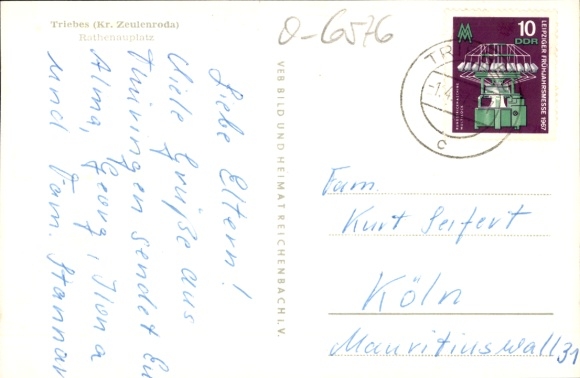 Triebes (Kr. Zeulenroda)
Rathenauplatz
0-6576
Liebe Eltern!
Viele Grüße aus
Thüringen sendet Eu
Alma,
Georg, Ilona
und Fam. Stannar
VEB BILD UND HEIMAT REICHENBACH I. V.
TR
-1.4
c
10
DDR
LEIPZIGER FRÜHJAHRSMESSE 1967
Fam.
Kurt Seifert
Köln
Mauritiuswall 31